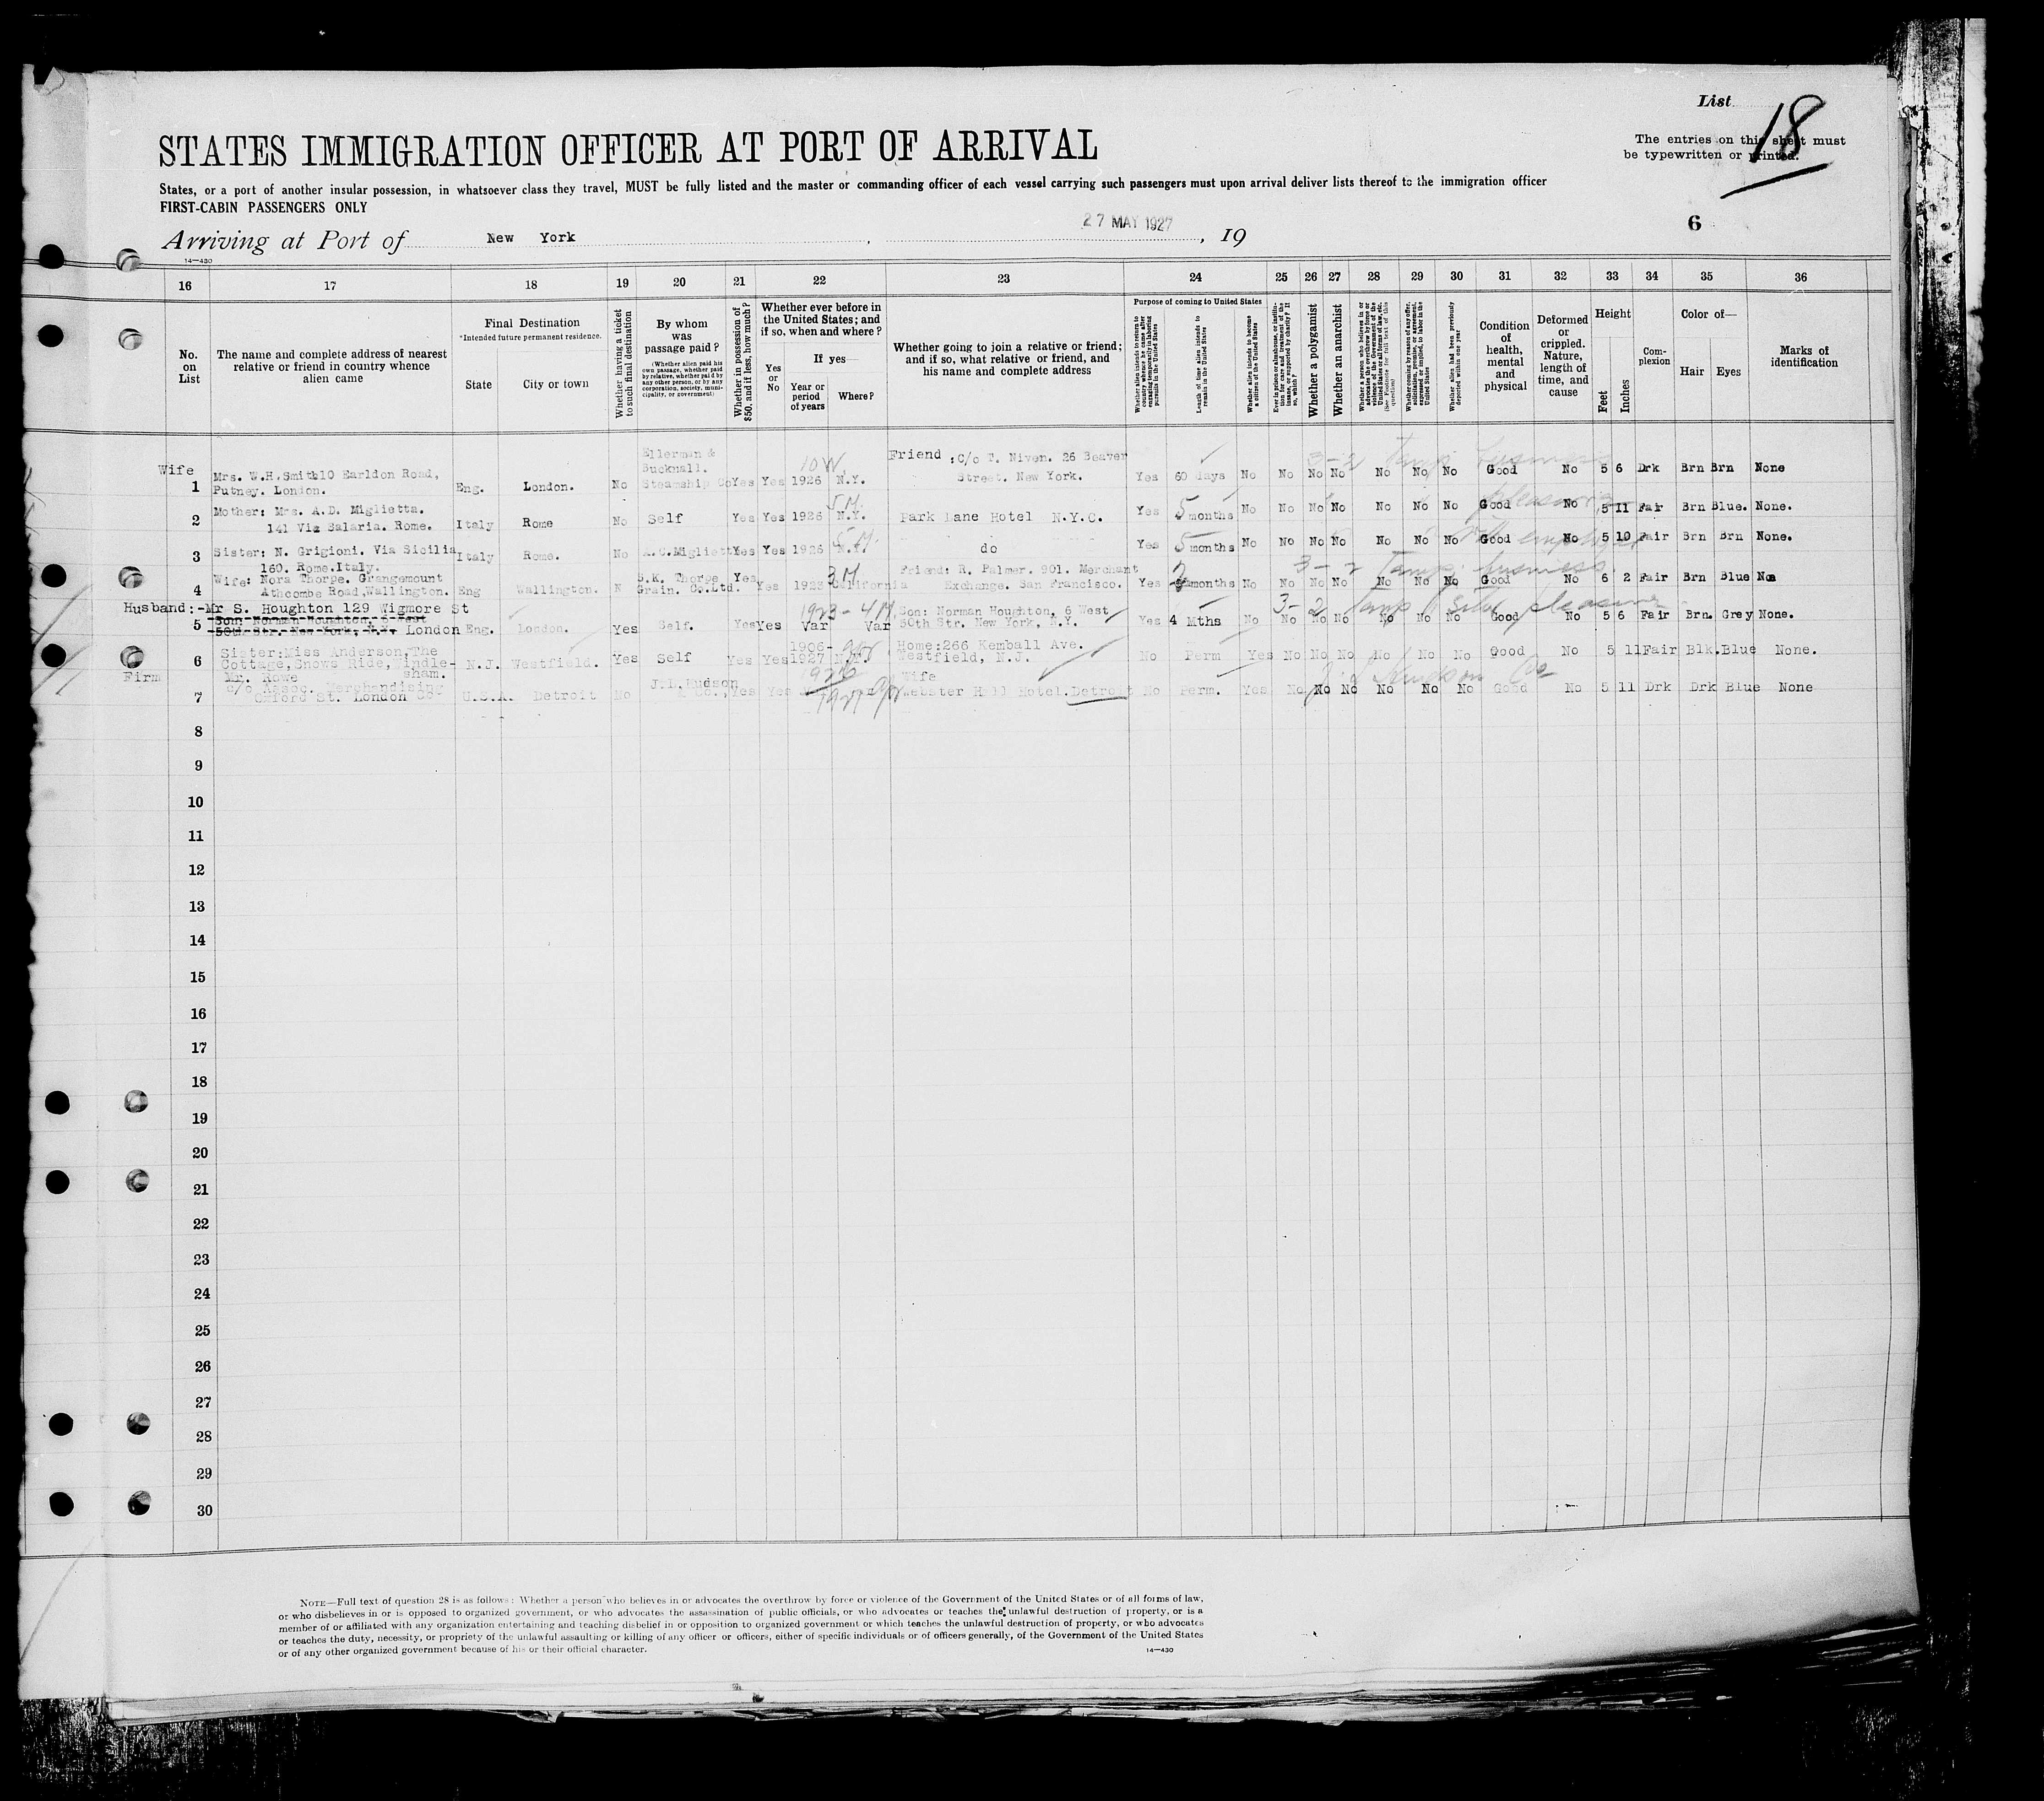 List 18
STATES IMMIGRATION OFFICER AT PORT OF ARRIVAL
The entries on this sheet must
be typewritten or printed.
States, or a port of another insular possession, in whatsoever class they travel, MUST be fully listed and the master or commanding officer of each vessel carrying such passengers must upon arrival deliver lists thereof to the immigration officer
FIRST-CABIN PASSENGERS ONLY
Arriving at Port of New York, 27 MAY 1927, 19
6
14—430
16 17 18 19 20 21 22 23 24 25 26 27 28 29 30 31 32 33 34 35 36
No. on List
The name and complete address of nearest relative or friend in country whence alien came
Final Destination
*Intended future permanent residence.
State
City or town
Whether having a ticket to such final destination
By whom was passage paid?
(Whether alien paid his own passage, whether paid by relative, whether paid by any other person, or by any corporation, society, municipality, or government)
Whether in possession of $50, and if less, how much?
Whether ever before in the United States; and if so, when and where?
Yes or No
If yes—
Year or period of years
Where?
Whether going to join a relative or friend; and if so, what relative or friend, and his name and complete address
Purpose of coming to United States
Whether alien intends to return to country whence he came after engaging temporarily in laboring pursuits in the United States
Length of time alien intends to remain in the United States
Whether alien intends to become a citizen of the United States
Ever in prison or almshouse, or institution for care and treatment of the insane, or supported by charity? If so, which?
Whether a polygamist
Whether an anarchist
Whether a person who believes in or advocates the overthrow by force or violence of the Government of the United States or all forms of law, etc. (See Footnote for full text of this question)
Whether coming by reason of any offer, solicitation, promise, or agreement, expressed or implied, to labor in the United States
Whether alien had been previously deported within one year
Condition of health, mental and physical
Deformed or crippled. Nature, length of time, and cause
Height
Feet
Inches
Complexion
Color of—
Hair
Eyes
Marks of identification
Wife
1 Mrs. W.H.Smith10 Earldon Road, Putney. London. Eng. London. No Ellerman & Bucknall. Steamship Co Yes Yes 10 W. 1926 N.Y. Friend :C/o T. Niven. 26 Beaver Street. New York. Yes 60 days No No No No No No No Good No 5 6 Drk Brn Brn None
3-2 Temp business
2 Mother: Mrs. A.D. Miglietta. 141 Via Salaria. Rome. Italy Rome No Self Yes Yes 1926 5 M. N.Y. Park Lane Hotel N.Y.C. Yes 5 months No No No No No No No Good No 5 11 Fair Brn Blue. None.
pleasure
3 Sister: N. Grigioni. Via Sicilia 160. Rome.Italy. Italy Rome. No A.C.Miglietta Yes Yes 1926 5 M. N.Y. do Yes 5 months No No No No No No No Good No 5 10 Fair Brn Brn None.
4 Wife: Nora Thorpe. Grangemount Athcombe Road,Wallington. Eng Wallington. N S.K. Thorpe Grain. Co.Ltd. Yes Yes 1923 3 M California Friend: R. Palmer. 901. Merchant Exchange. San Francisco. Yes 2 months No No No No No No No Good No 6 2 Fair Brn Blue No
3-2 Temp. business.
5 Husband:-Mr S. Houghton 129 Wigmore St London
Son: Norman Houghton, 6 West 50th Str. New York, N.Y.
Eng. London. Yes Self. Yes Yes 1923- 4 M. Var Var Son: Norman Houghton, 6 West 50th Str. New York, N.Y. Yes 4 Mths No No No No No No No Good No 5 6 Fair Brn. Grey None.
3-2 Temp pleasure
6 Sister:Miss Anderson,The Cottage,Snows Ride,Windlesham. N.J. Westfield. Yes Self Yes Yes 1906- 1927 N.Y. Home:266 Kemball Ave. Westfield, N.J. No Perm Yes No No No No No No Good No 5 11 Fair Blk. Blue None.
Firm
7 Mr. Rowe c/o Assoc. Merchandising Co Oxford St. London U.S.A. Detroit No J.L.Hudson Co., Yes Yes 1926 1927 Wife Webster Hall Hotel.Detroit No Perm. Yes No No No No No No Good No 5 11 Drk Drk Blue None
J L Hudson Co
8
9
10
11
12
13
14
15
16
17
18
19
20
21
22
23
24
25
26
27
28
29
30
NOTE—Full text of question 28 is as follows: Whether a person who believes in or advocates the overthrow by force or violence of the Government of the United States or of all forms of law,
or who disbelieves in or is opposed to organized government, or who advocates the assassination of public officials, or who advocates or teaches the unlawful destruction of property, or is a
member of or affiliated with any organization entertaining and teaching disbelief in or opposition to organized government or which teaches the unlawful destruction of property, or who advocates
or teaches the duty, necessity, or propriety of the unlawful assaulting or killing of any officer or officers, either of specific individuals or of officers generally, of the Government of the United States
or of any other organized government because of his or their official character.
14—430